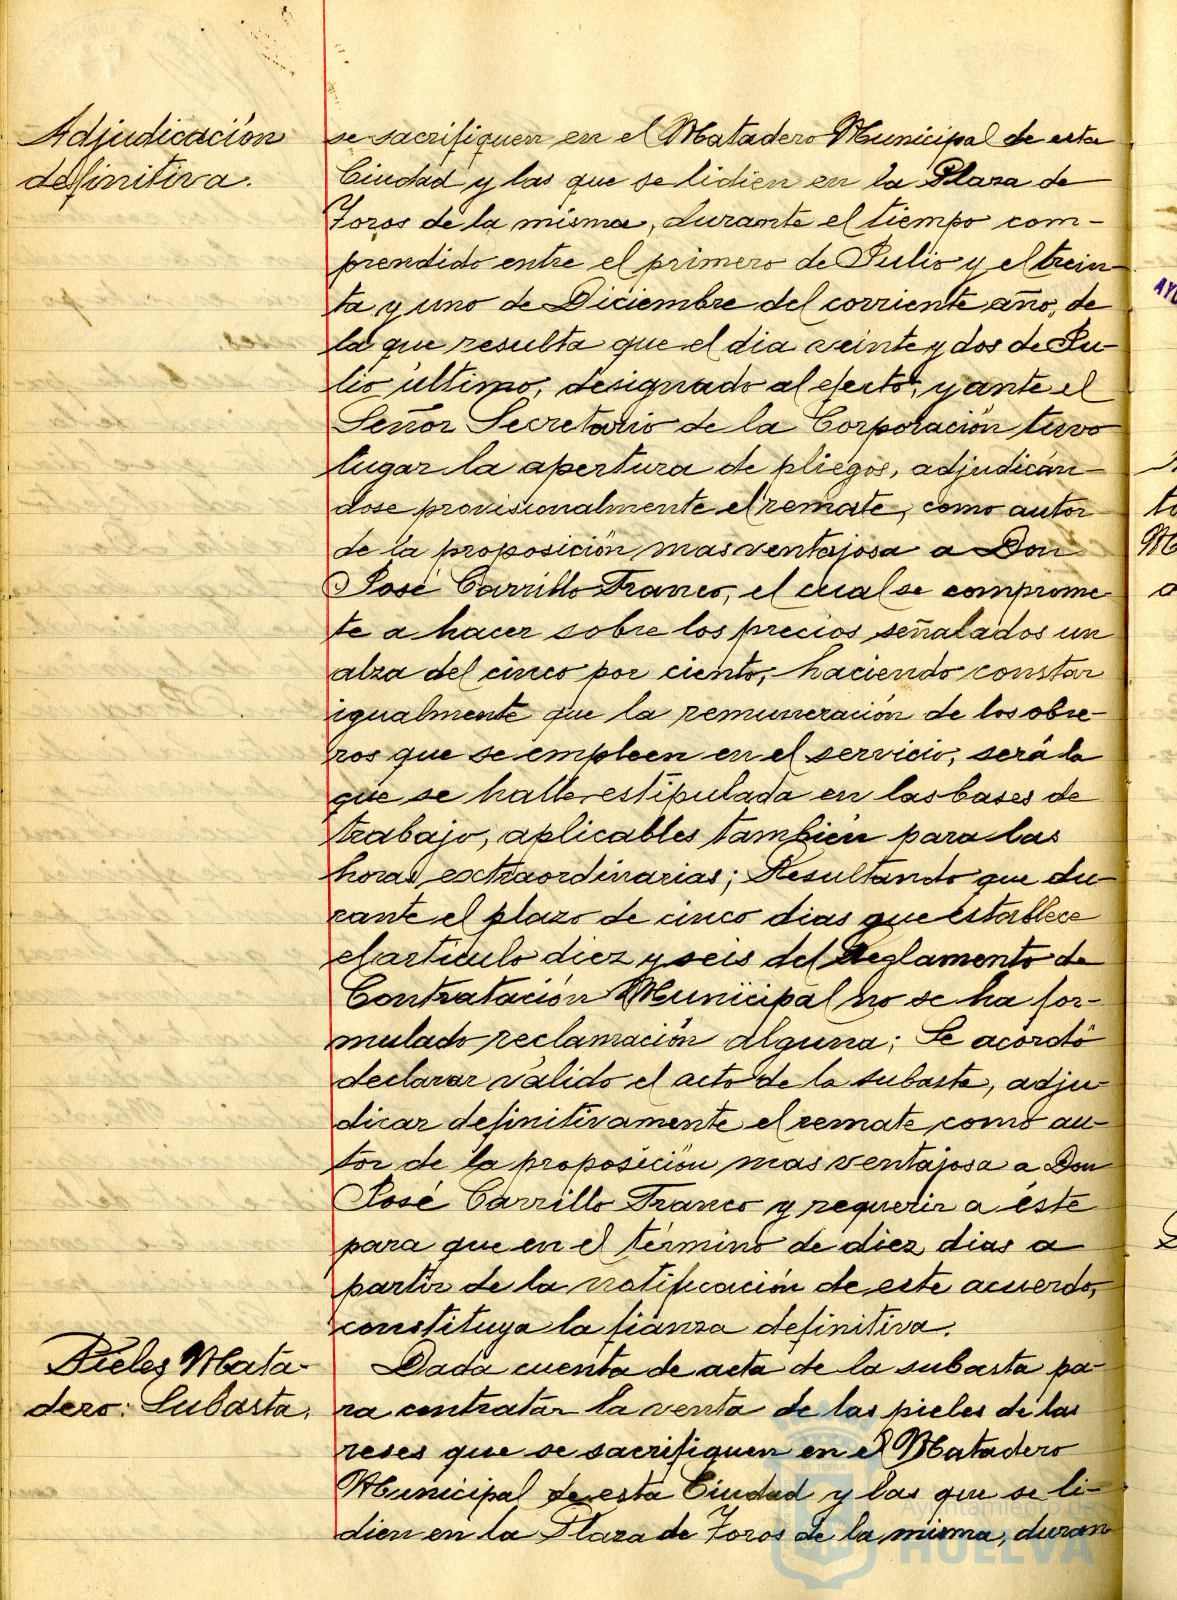 Adjudicación
definitiva.
se sacrifiquen en el Matadero Municipal de esta
Ciudad y las que se lidien en la Plaza de
Toros de la misma, durante el tiempo com-
prendido entre el primero de Julio y el trein-
ta y uno de Diciembre del corriente año, de
la que resulta que el dia veinte y dos de Ju-
lio último, designado al efecto, y ante el
Señor Secretario de la Corporación tuvo
lugar la apertura de pliegos, adjudicán-
dose provisionalmente el remate, como autor
de la proposición mas ventajosa a Don
José Carrillo Franco, el cual se comprome-
te a hacer sobre los precios señalados un
alza del cinco por ciento, haciendo constar
igualmente que la remuneración de los obre-
ros que se empleen en el servicio, será la
que se halle estipulada en las bases de
trabajo, aplicables también para las
horas extraordinarias; Resultando que du-
rante el plazo de cinco dias que establece
el articulo diez y seis del Reglamento de
Contratación Municipal no se ha for-
mulado reclamación alguna; Se acordó
declarar válido el acto de la subasta, adju-
dicar definitivamente el remate como au-
tor de la proposición mas ventajosa a Don
José Carrillo Franco y requerir a éste
para que en el término de diez dias a
partir de la notificación de este acuerdo,
constituya la fianza definitiva.
Pieles Mata-
dero: Subasta.
Dada cuenta de acta de la subasta pa-
ra contratar la venta de las pieles de las
reses que se sacrifiquen en el Matadero
Municipal de esta Ciudad y las que se li-
dien en la Plaza de Toros de la misma, duran
Ayuntamiento de
HUELVA